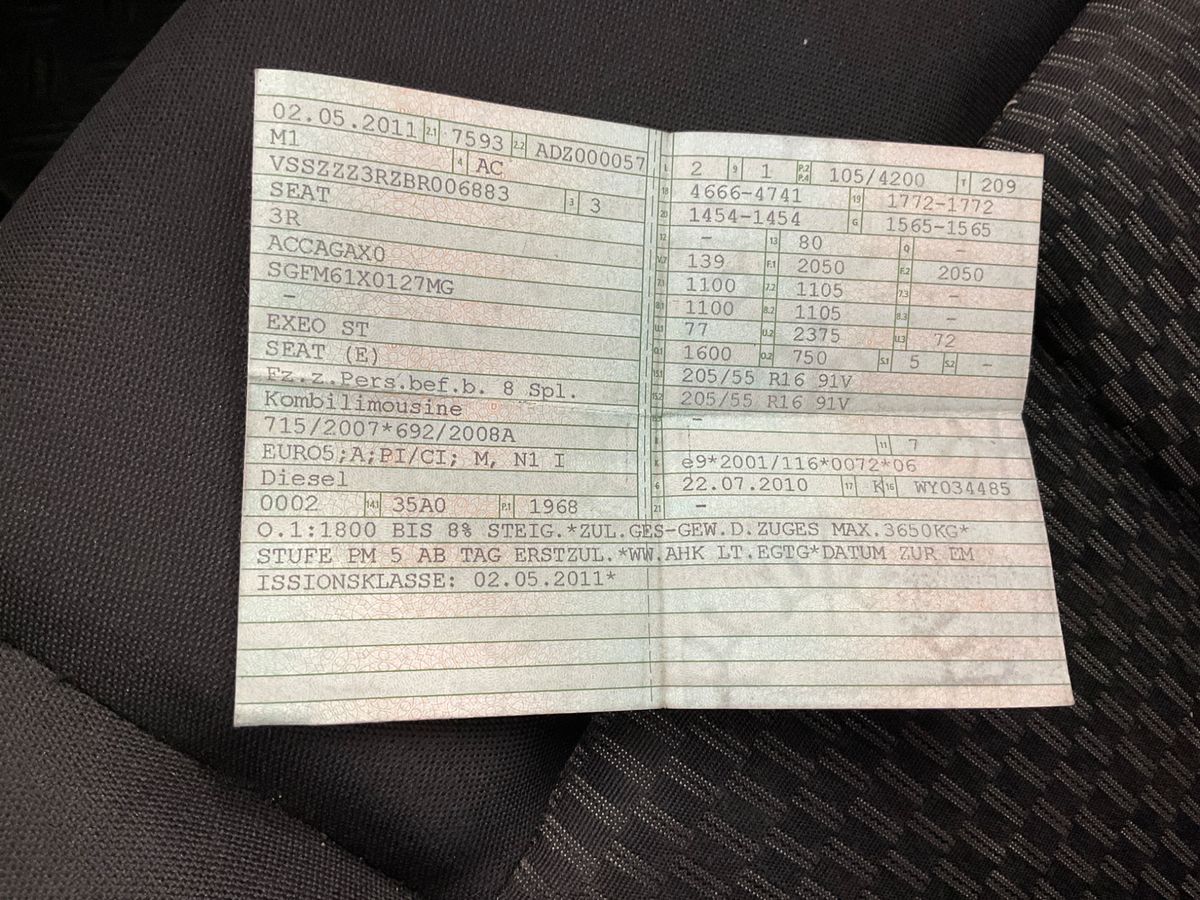 02.05.2011 2.1 7593 2.2 ADZ000057
M1 4 AC
VSSZZZ3RZBR006883 3 3
SEAT
3R
ACCAGAX0
SGFM61X0127MG
–
EXEO ST
SEAT (E)
Fz.z.Pers.bef.b. 8 Spl.
Kombilimousine
715/2007*692/2008A
EURO5;A;PI/CI; M, N1 I
Diesel
0002 14.1 35A0 P.1 1968
L 2 9 1 P.2 P.4 105/4200 T 209
18 4666-4741 19 1772-1772
20 1454-1454 G 1565-1565
12 – 13 80 Q –
V.7 139 F.1 2050 F.2 2050
7.1 1100 7.2 1105 7.3 –
8.1 1100 8.2 1105 8.3 –
U.1 77 U.2 2375 U.3 72
O.1 1600 O.2 750 S.1 5 S.2 –
15.1 205/55 R16 91V
15.2 205/55 R16 91V
15.3 –
R 11 7
K e9*2001/116*0072*06
6 22.07.2010 17 K 16 WY034485
21 –
O.1:1800 BIS 8% STEIG.*ZUL.GES-GEW.D.ZUGES MAX.3650KG*
STUFE PM 5 AB TAG ERSTZUL.*WW.AHK LT.EGTG*DATUM ZUR EM
ISSIONSKLASSE: 02.05.2011*